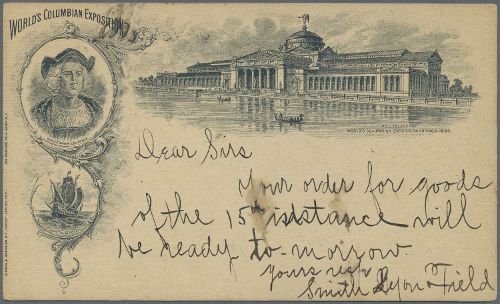 WORLD'S COLUMBIAN EXPOSITION
ART PALACE
WORLD'S COLUMBIAN EXPOSITION CHICAGO, 1893.
Dear Sirs
Your order for goods
of the 15th instance will
be ready to-morrow.
Yours resp
Smith Lyon & Field